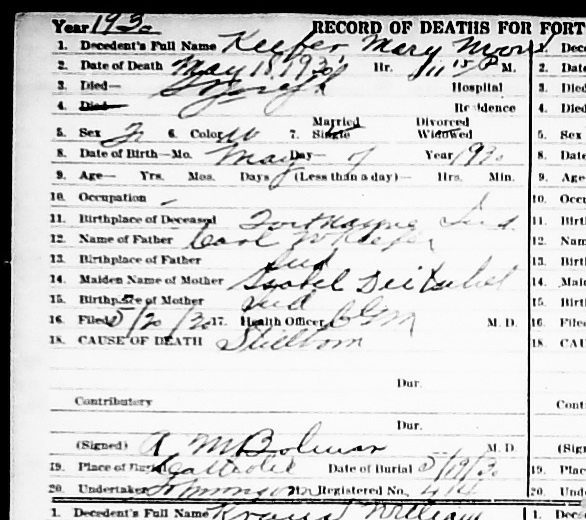 Year 1930 RECORD OF DEATHS FOR FORT
1. Decedent's Full Name Keefer Mary
2. Date of Death May 18, 1930 Hr. 11 15 P M.
3. Died— St Joseph Hospital
4. Died— Residence
Married Divorced
5. Sex F 6. Color W 7. Single Widowed
8. Date of Birth—Mo. May Day— Year 1930
9. Age— Yrs. Mos. Days (Less than a day)— Hrs. Min.
10. Occupation –
11. Birthplace of Deceased Fort Wayne Ind.
12. Name of Father Carl W Keefer
13. Birthplace of Father Ind
14. Maiden Name of Mother Isabel
15. Birthplace of Mother Ind
16. Filed 5/20/30 17. Health Officer M. D.
18. CAUSE OF DEATH Stillborn
Dur.
Contributory
Dur.
(Signed) A M M. D.
19. Place of Burial Catholic Date of Burial 5/19/30
20. Undertaker 21. Registered No. 414
1. Decedent's Full Name William
1. Dece
2. Date
3. Died
4. Died
5. Sex
8. Date
9. Age
10. Occu
11. Birt
12. Nam
13. Birt
14. Maid
15. Birt
16. File
18. CAU
Con
(Sign
19. Plac
20. Und
1. Dece